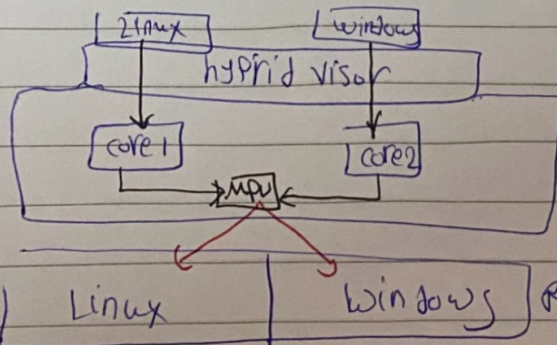 Linux windows
hyprid visor
core1 core2
MPU
Linux windows